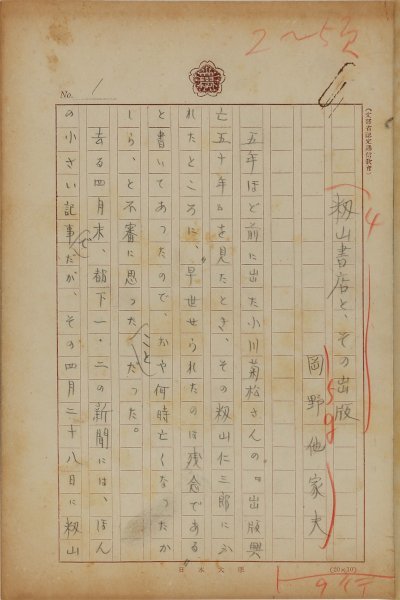 2〜5頁
No. 1
(文部省認定通信教育)
4
籾山書店と、その出版
岡野他家夫
15g
五年ほど前に出た小川菊松さんの『出版興
亡五十年』を見たとき、その籾山仁三郎にふ
れたところに、"早世せられたのは残念である"
と書いてあったので、おや何時亡くなったか
しら、と不審に思ったことだった。
去る四月末、都下一・二の新聞には、ほん
の小さい記事でだが、その四月二十八日に籾山
日本大學
(20×10)
9行